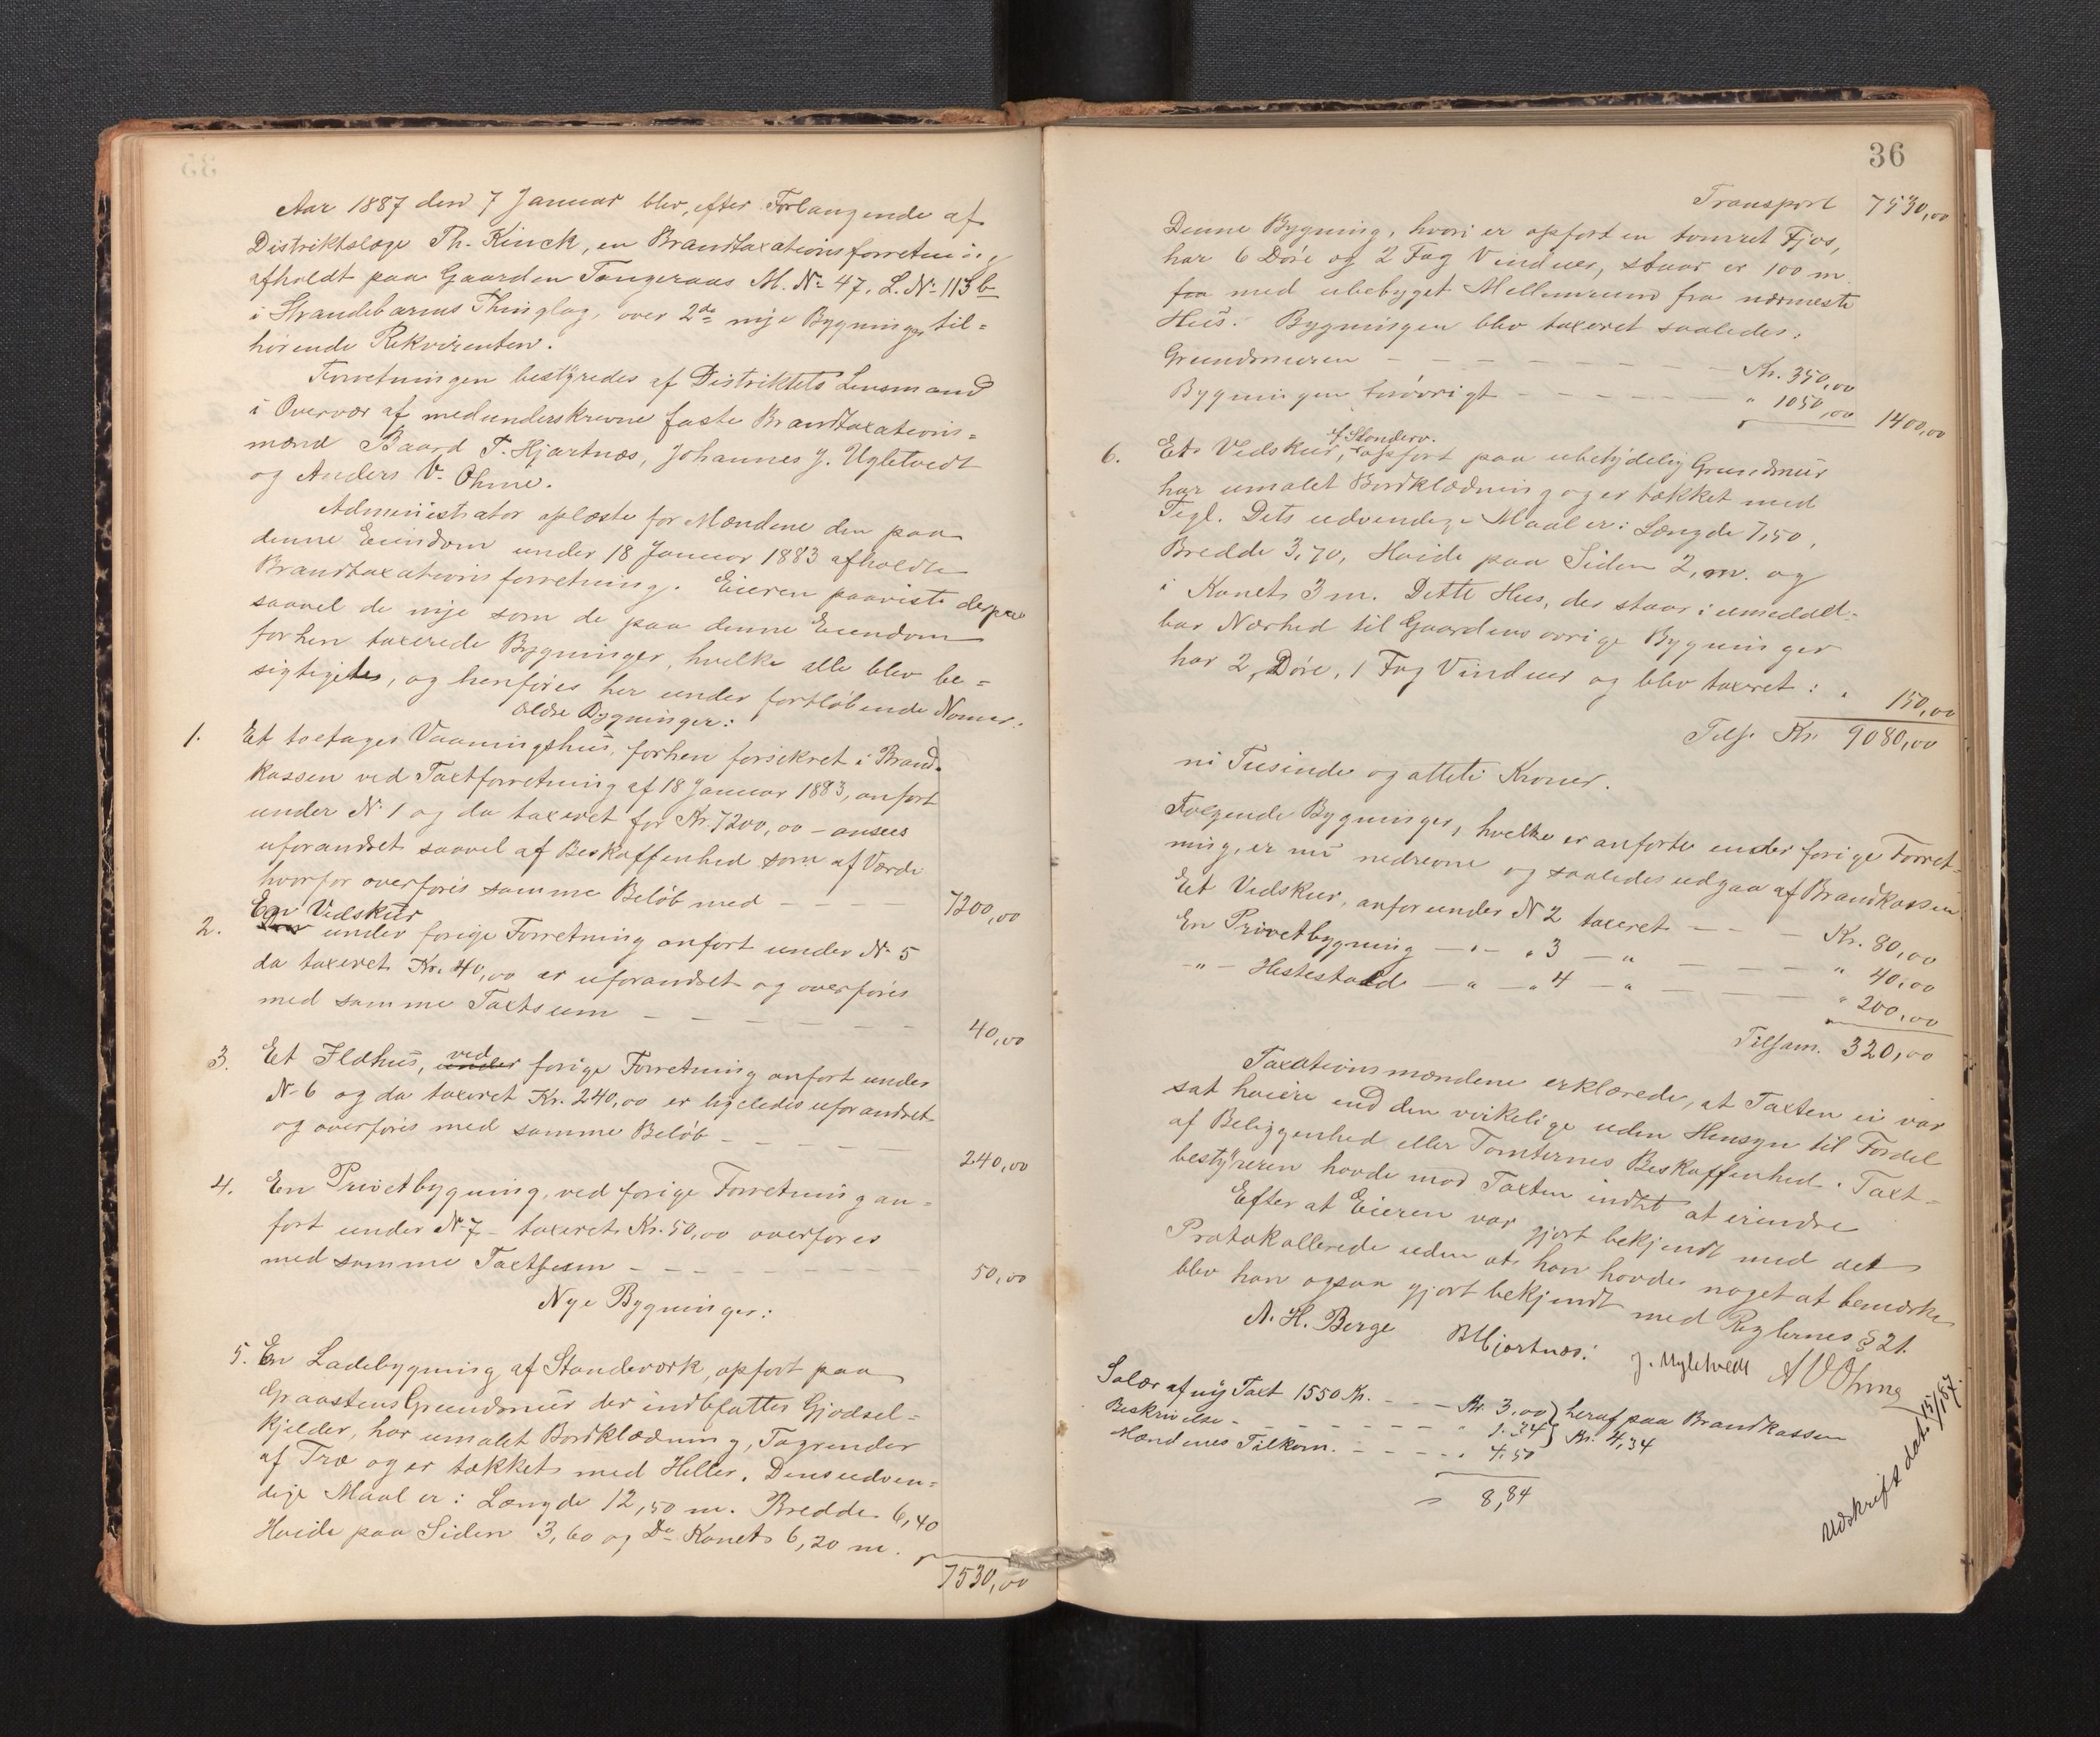 Aar 1887 den 7 Januar blev, efter Forlangende af
Distriktslæge Th. Kinck, en Brandtaxationsforretning
afholdt paa Gaarden Tangeraas M. No 47, L. No 113 b
i Strandebarms Thinglag, over 2de nye Bygninger til-
hørende Rekvirenten.
Forretningen bestyredes af Distriktets Lensmand
i Overvær af medunderskrevne faste Brandtaxations-
mænd Baard T. Hjartnæs, Johannes J. Ugletvedt
og Anders V. Ohme.
Administrator oplæste for Mændene den paa
denne Eiendom under 18 Januar 1883 afholdte
Brandtaxationsforretning. Eieren paaviste derpaa
saavel de nye som de paa denne Eiendom
forhen taxerede Bygninger, hvilke alle blev be-
sigtigede, og henføres her under fortløbende Nomer.
Ældre Bygninger:
1. Et toetages Vaaningshus, forhen forsikret i Brand-
kassen ved Taxtforretning af 18 Januar 1883, anført
under No 1 og da taxeret for Kr. 7200,00 - ansees
uforandret saavel af Beskaffenhed som af Værdi
hvorfor overføres samme Beløb med - - - - 7200,00
En Vedskur
2. under forige Forretning anført under No 5
da taxeret Kr. 40,00 er uforandret og overføres
med samme Taxtsum - - - - - - - 40,00
3. Et Ildhus, ved under forige Forretning anført under
No 6 og da taxeret Kr. 240,00 er ligeledes uforandret
og overføres med samme Beløb - - - - - 240,00
4. En Privetbygning, ved forige Forretning an-
ført under No 7 - taxeret Kr. 50,00 overføres
med samme Taxtsum - - - - - - - - 50,00
Nye Bygninger:
5. En Ladebygning af Standerværk, opført paa
Graastens Grundmur der indbefatter Gjødsel-
kjelder, har umalet Bordklædning, Tagrender
af Træ og er tækket med Heller. Dens udven-
dige Maal er: Længde 12,50 m. Bredde 6,40
Høide paa Siden 3,60 og Do Rønet 6,20 m.
7530,00
36
Transport 7530,00
Denne Bygning, hvori er opført en tømret Fjøs,
har 6 Døre og 2 Fag Vinduer, staar er 100 m
fra med ubebygget Mellemrum fra nærmeste
Hus. Bygningen blev taxeret saaledes:
Grundmuren - - - - - - - - Kr. 350,00
Bygningen forøvrigt - - - - - - " 1050,00 1400,00
af Standerv.
6. Et Vedskur, opført paa ubetydelig Grundmur
har umalet Bordklædning og er tækket med
Tegl. Dets udvendige Maal er: Længde 7,50,
Bredde 3,70, Høide paa Siden 2, m. og
i Rønet 3 m. Dette Hus, der staar i umiddel-
bar Nærhed til Gaardens øvrige Bygninger
har 2 Døre, 1 Fag Vinduer og blev taxeret: " 150,00
Tils. Kr. 9080,00
ni Tusinde og otteti Kroner.
Følgende Bygninger, hvilke er anførte under forige Forret-
ning, er nu nedrevne og saaledes udgaa af Brandkassen
Et Vedskur, anfør under No 2 taxeret - - - Kr. 80,00
En Privetbygning - " - " 3 - " - - - " 40,00
- " - Hestestald - " - " 4 - " - - - " 200,00
Tilsam. 320,00
Taxationsmændene erklærede, at Taxten ei var
sat høiere end den virkelige uden Hensyn til Fordel
af Beliggenhed eller Tomternes Beskaffenhed. Taxt-
bestyreren havde mod Taxten indtet at erindre
Efter at Eieren var gjort bekjendt med det
Protokollerede uden at han havde noget at bemærke
blev han ogsaa gjort bekjendt med Reglernes § 21.
A. H. Berge B Hjartnæs. J. Ugletvedt A V Ohme
Salær af ny Taxt 1550 Kr. - - - Kr. 3,00 } heraf paa Brandkassen
Beskrivelse - - - - - - - " 1.34 } Kr. 4,34
Mændenes Tilkom. - - - - - " 4,50
8,84
Udskrift dat. 15/1 87.